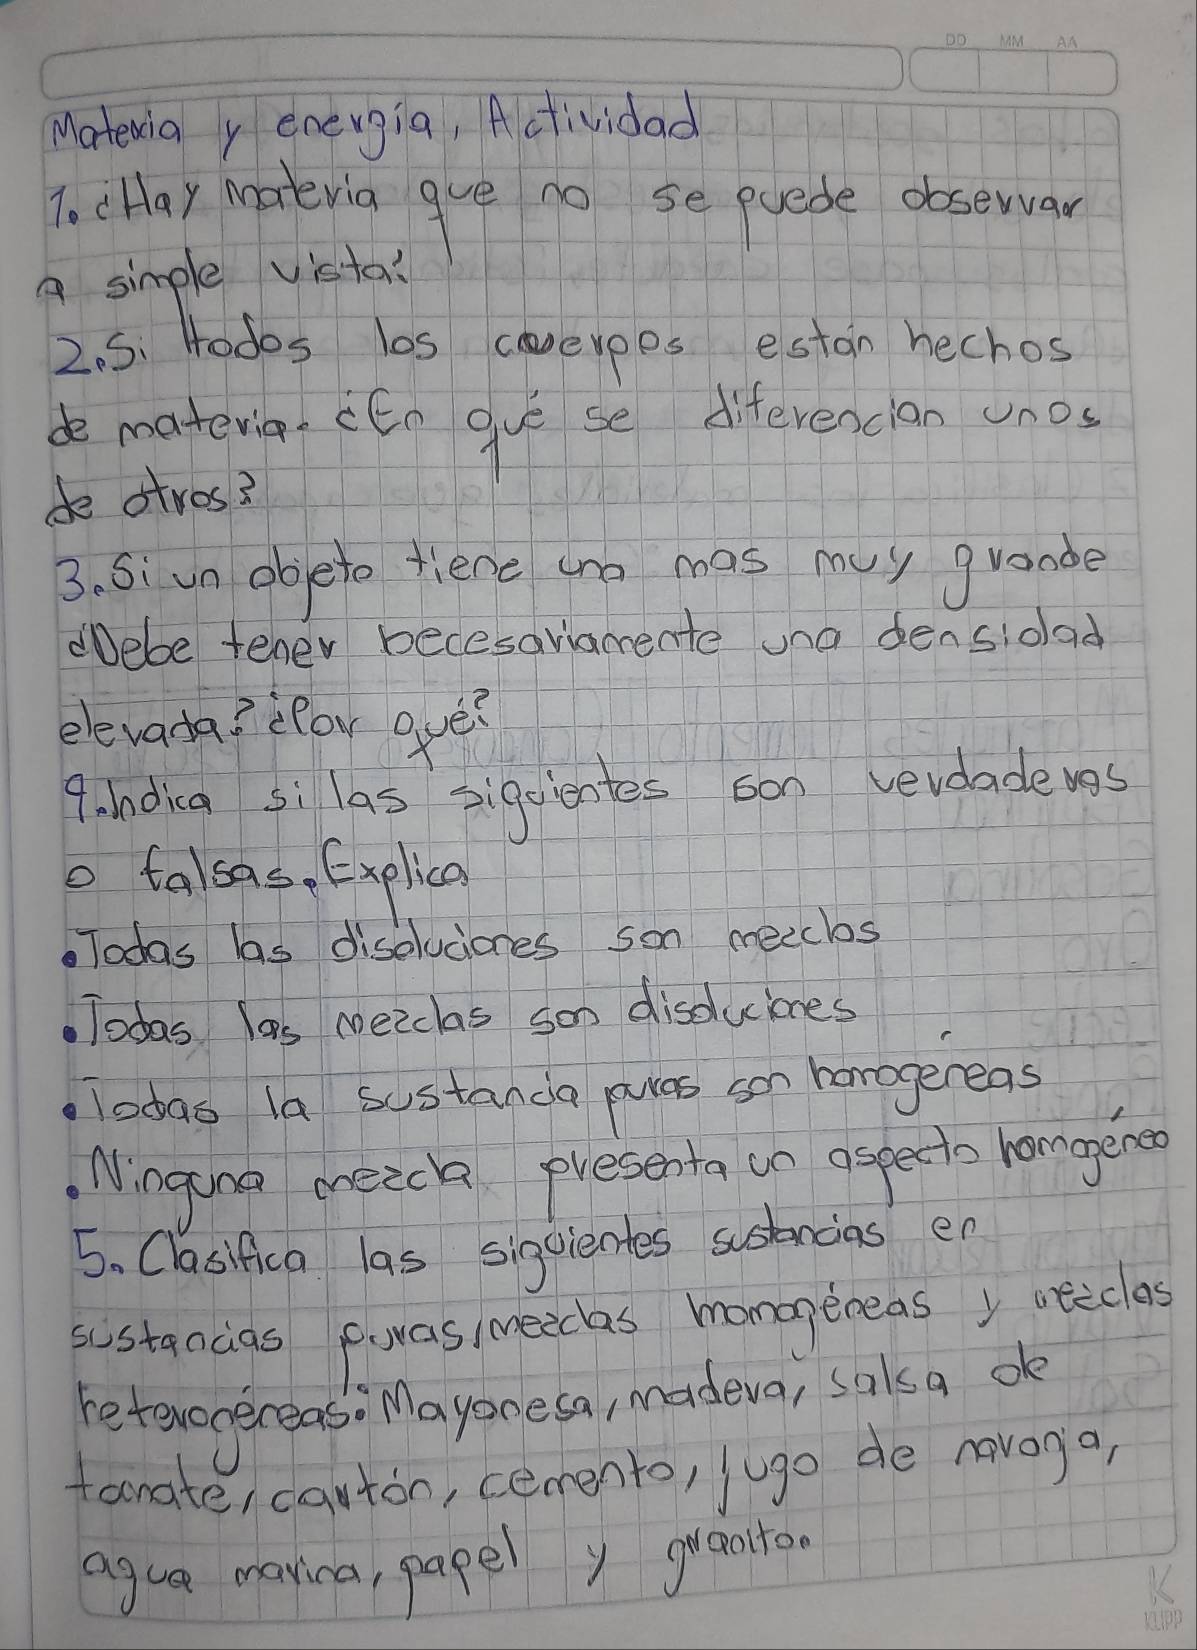 DD MM AA
Materia y energía, Actividad
1. ¿Hay materia que no se puede observar
a simple vista?
2. Si todos los cuerpos están hechos
de materia. ¿En qué se diferencian unos
de otros?
3. Si un objeto tiene una mas muy grande
¿Debe tener becesariamente una densidad
elevada? ¿Por qué?
4. Indica si las siguientes son verdaderas
o falsas. Explica
• Todas las disoluciones son mezclas
• Todas las mezclas son disoluciones
• Todas la sustancia puras son homogéneas
• Ninguna mezcla presenta un aspecto homogéneo
5. Clasifica las siguientes sustancias en
sustancias puras, mezclas momogéneas y mezclas
heterogéneas: Mayonesa, madera, salsa de
tomate, cartón, cemento, jugo de naranja,
agua marina, papel y granito.
KLIPP